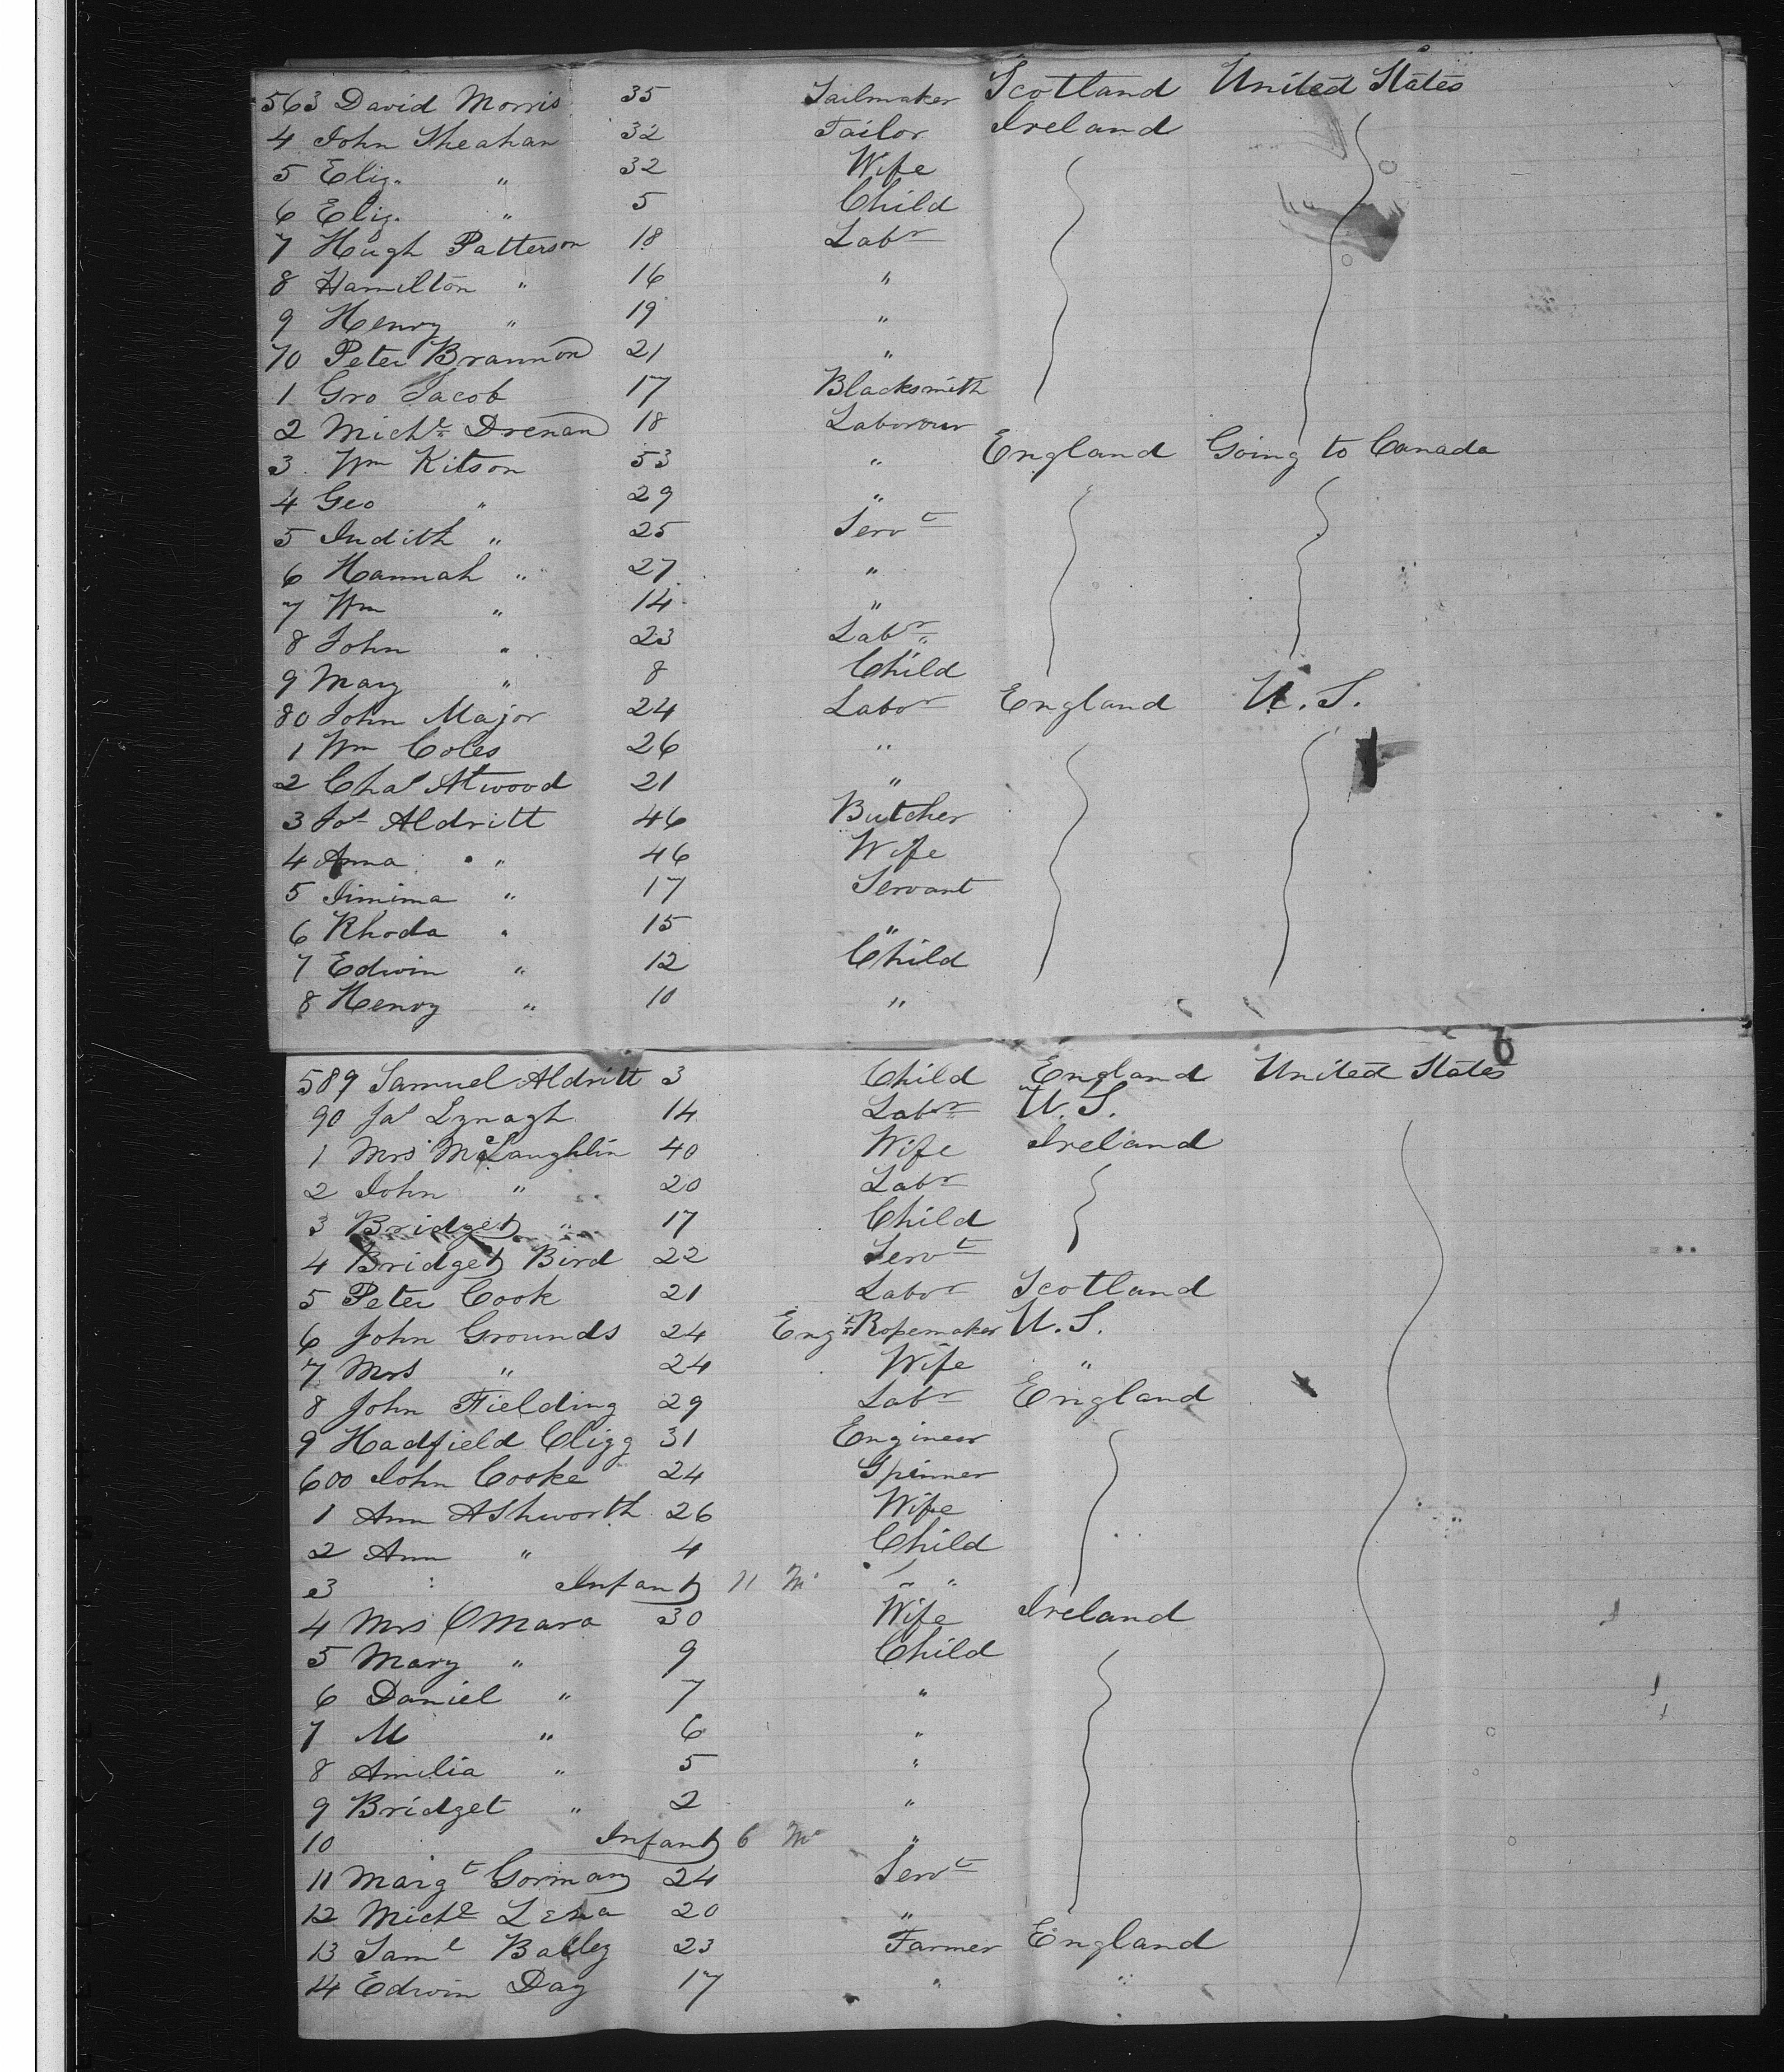 563 David Morris 35 Sailmaker Scotland United States
4 John Sheahan 32 Tailor Ireland
5 Eliz. " 32 Wife
6 Eliz. " 5 Child
7 Hugh Patterson 18 Labr
8 Hamilton " 16 "
9 Henry " 19 "
70 Peter Brannon 21 "
1 Gro Jacob 17 Blacksmith
2 Michl Drenan 18 Labourer
3 Wm Kitson 53 " England Going to Canada
4 Geo " 29 "
5 Judith " 25 Servt
6 Hannah " 27 "
7 Wm " 14 "
8 John " 23 Labr
9 Mary " 8 Child
80 John Major 24 Labor England U.S.
1 Wm Coles 26 "
2 Chas Atwood 21 "
3 Jos Aldritt 46 Butcher
4 Anna " 46 Wife
5 Jimima " 17 Servant
6 Rhoda " 15 "
7 Edwin " 12 Child
8 Henry " 10 "
6
589 Samuel Aldritt 3 Child England United States
90 Jas Lynagh 14 Labr U.S.
1 Mrs McLaughlin 40 Wife Ireland
2 John " 20 Labr
3 Bridget " 17 Child
4 Bridget Bird 22 Servt
5 Peter Cook 21 Labor Scotland
6 John Grounds 24 Engr Ropemaker U.S.
7 Mrs " 24 Wife "
8 John Fielding 29 Labr England
9 Hadfield Cligg 31 Engineer
600 John Cooke 24 Spinner
1 Ann Ashworth 26 Wife
2 Ann " 4 Child
3 " Infant 11 M "
4 Mrs OMara 30 Wife Ireland
5 Mary " 9 Child
6 Daniel " 7 "
7 M " 6 "
8 Amilia " 5 "
9 Bridget " 2 "
10 Infant 6 Mo "
11 Margt Gorman 24 Servt
12 Michl 20 "
13 Saml Balley 23 Farmer England
14 Edwin Day 17 " "